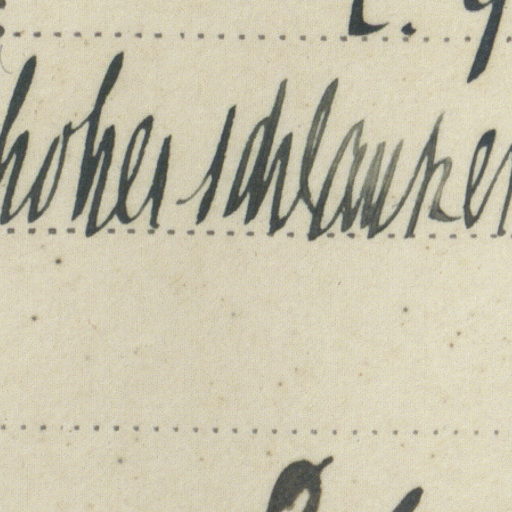 hoher schlanker